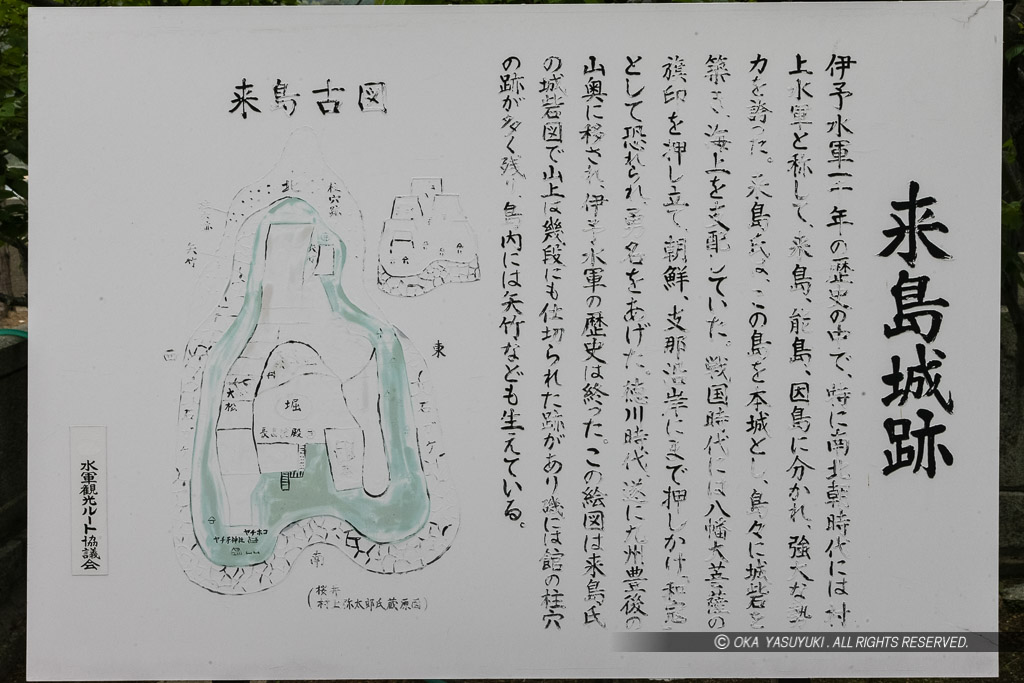 来島城跡
伊予水軍一千年の歴史の中で、特に南北朝時代には村
上水軍と称して、来島、能島、因島に分かれ、強大な勢
力を誇った。来島氏は、この島を本城とし、島々に城砦を
築き、海上を支配していた。戦国時代には八幡大菩薩の
旗印を押し立て、朝鮮、支那沿岸にまで押しかけ「和寇」
として恐れられ勇名をあげた。徳川時代、遂に九州豊後の
山奥に移され、伊予水軍の歴史は終った。この絵図は来島氏
の城砦図で山上は幾段にも仕切られた跡があり磯には館の柱穴
の跡が多く残り、島内には矢竹なども生えている。
来島古図
北
柱穴跡
矢竹
西
東
大松
堀
殿
ヤチホコ
ヤチ子神社
南
(桜井
村上弥太郎氏蔵原図)
水軍観光ルート協議会
© OKA YASUYUKI . ALL RIGHTS RESERVED.